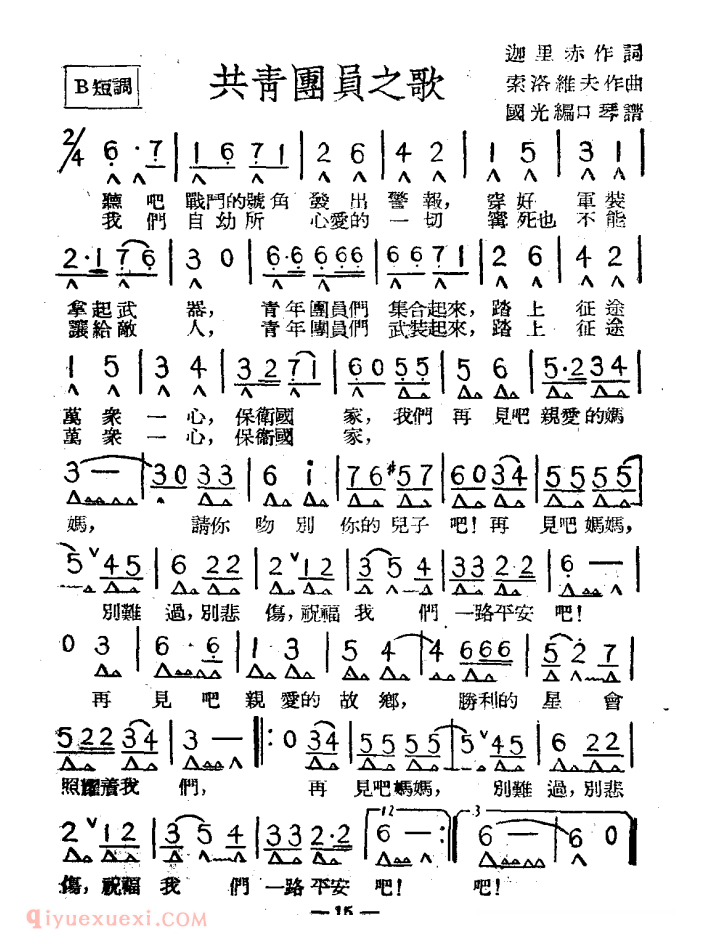 B 短調
共青團員之歌
迦里赤作詞
索洛維夫作曲
國光編口琴譜
2/4 6·7 | 1 6 7 1 | 2 6 | 4 2 | 1 5 | 3 1 |
聽吧 戰鬥的號角 發出警報, 穿好 軍裝
我們 自幼所 心愛的一切 寧死也 不能
2·1 7 6 | 3 0 | 6·6 6 6 6 | 6 6 7 1 | 2 6 | 4 2 |
拿起武 器, 青年團員們 集合起來, 踏上 征途
讓給敵 人, 青年團員們 武裝起來, 踏上 征途
1 5 | 3 4 | 3 2 7 1 | 6 0 5 5 | 5 6 | 5·2 3 4 |
萬衆一心, 保衛國 家, 我們再見吧 親愛的媽
萬衆一心, 保衛國 家,
3 — | 3 0 3 3 | 6 i | 7 6 #5 7 | 6 0 3 4 | 5 5 5 5 |
媽, 請你吻別 你的兒子吧! 再見吧媽媽,
5 ∨ 4 5 | 6 2 2 | 2 ∨ 1 2 | 3 5 4 | 3 3 2·2 | 6 — |
別難過, 別悲傷, 祝福我們 一路平安吧!
0 3 | 6·6 | 1 3 | 5 4 | 4 6 6 6 | 5 2 7 |
再見吧 親愛的故鄉, 勝利的星會
5 2 2 3 4 | 3 — ‖: 0 3 4 | 5 5 5 5 | 5 ∨ 4 5 | 6 2 2 |
照耀着我們, 再見吧媽媽, 別難過, 別悲
2 ∨ 1 2 | 3 5 4 | 3 3 2·2 | 12 6 — :‖ 3 6 — | 6 0 ‖
傷, 祝福我們 一路平安吧! 吧!
qiyuexuexi.com
— 15 —